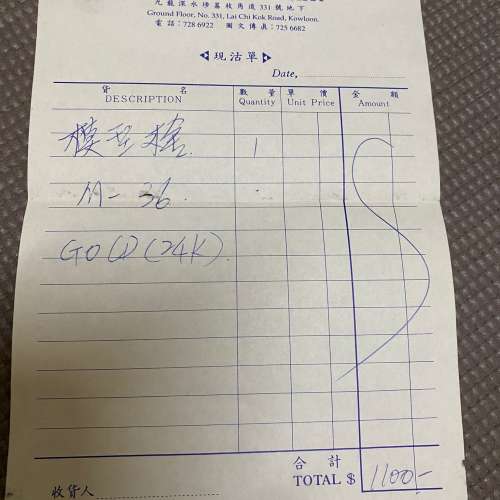 九龍深水埗荔枝角道 331 號地下
Ground Floor, No. 331, Lai Chi Kok Road, Kowloon.
電話：728 6922 圖文傳真：725 6682
現沽單
Date,
貨名 數量 單價 金額
DESCRIPTION Quantity Unit Price Amount
模型槍 1
M-36
GOLD (24K)
合計
TOTAL $ 1100-
收貨人